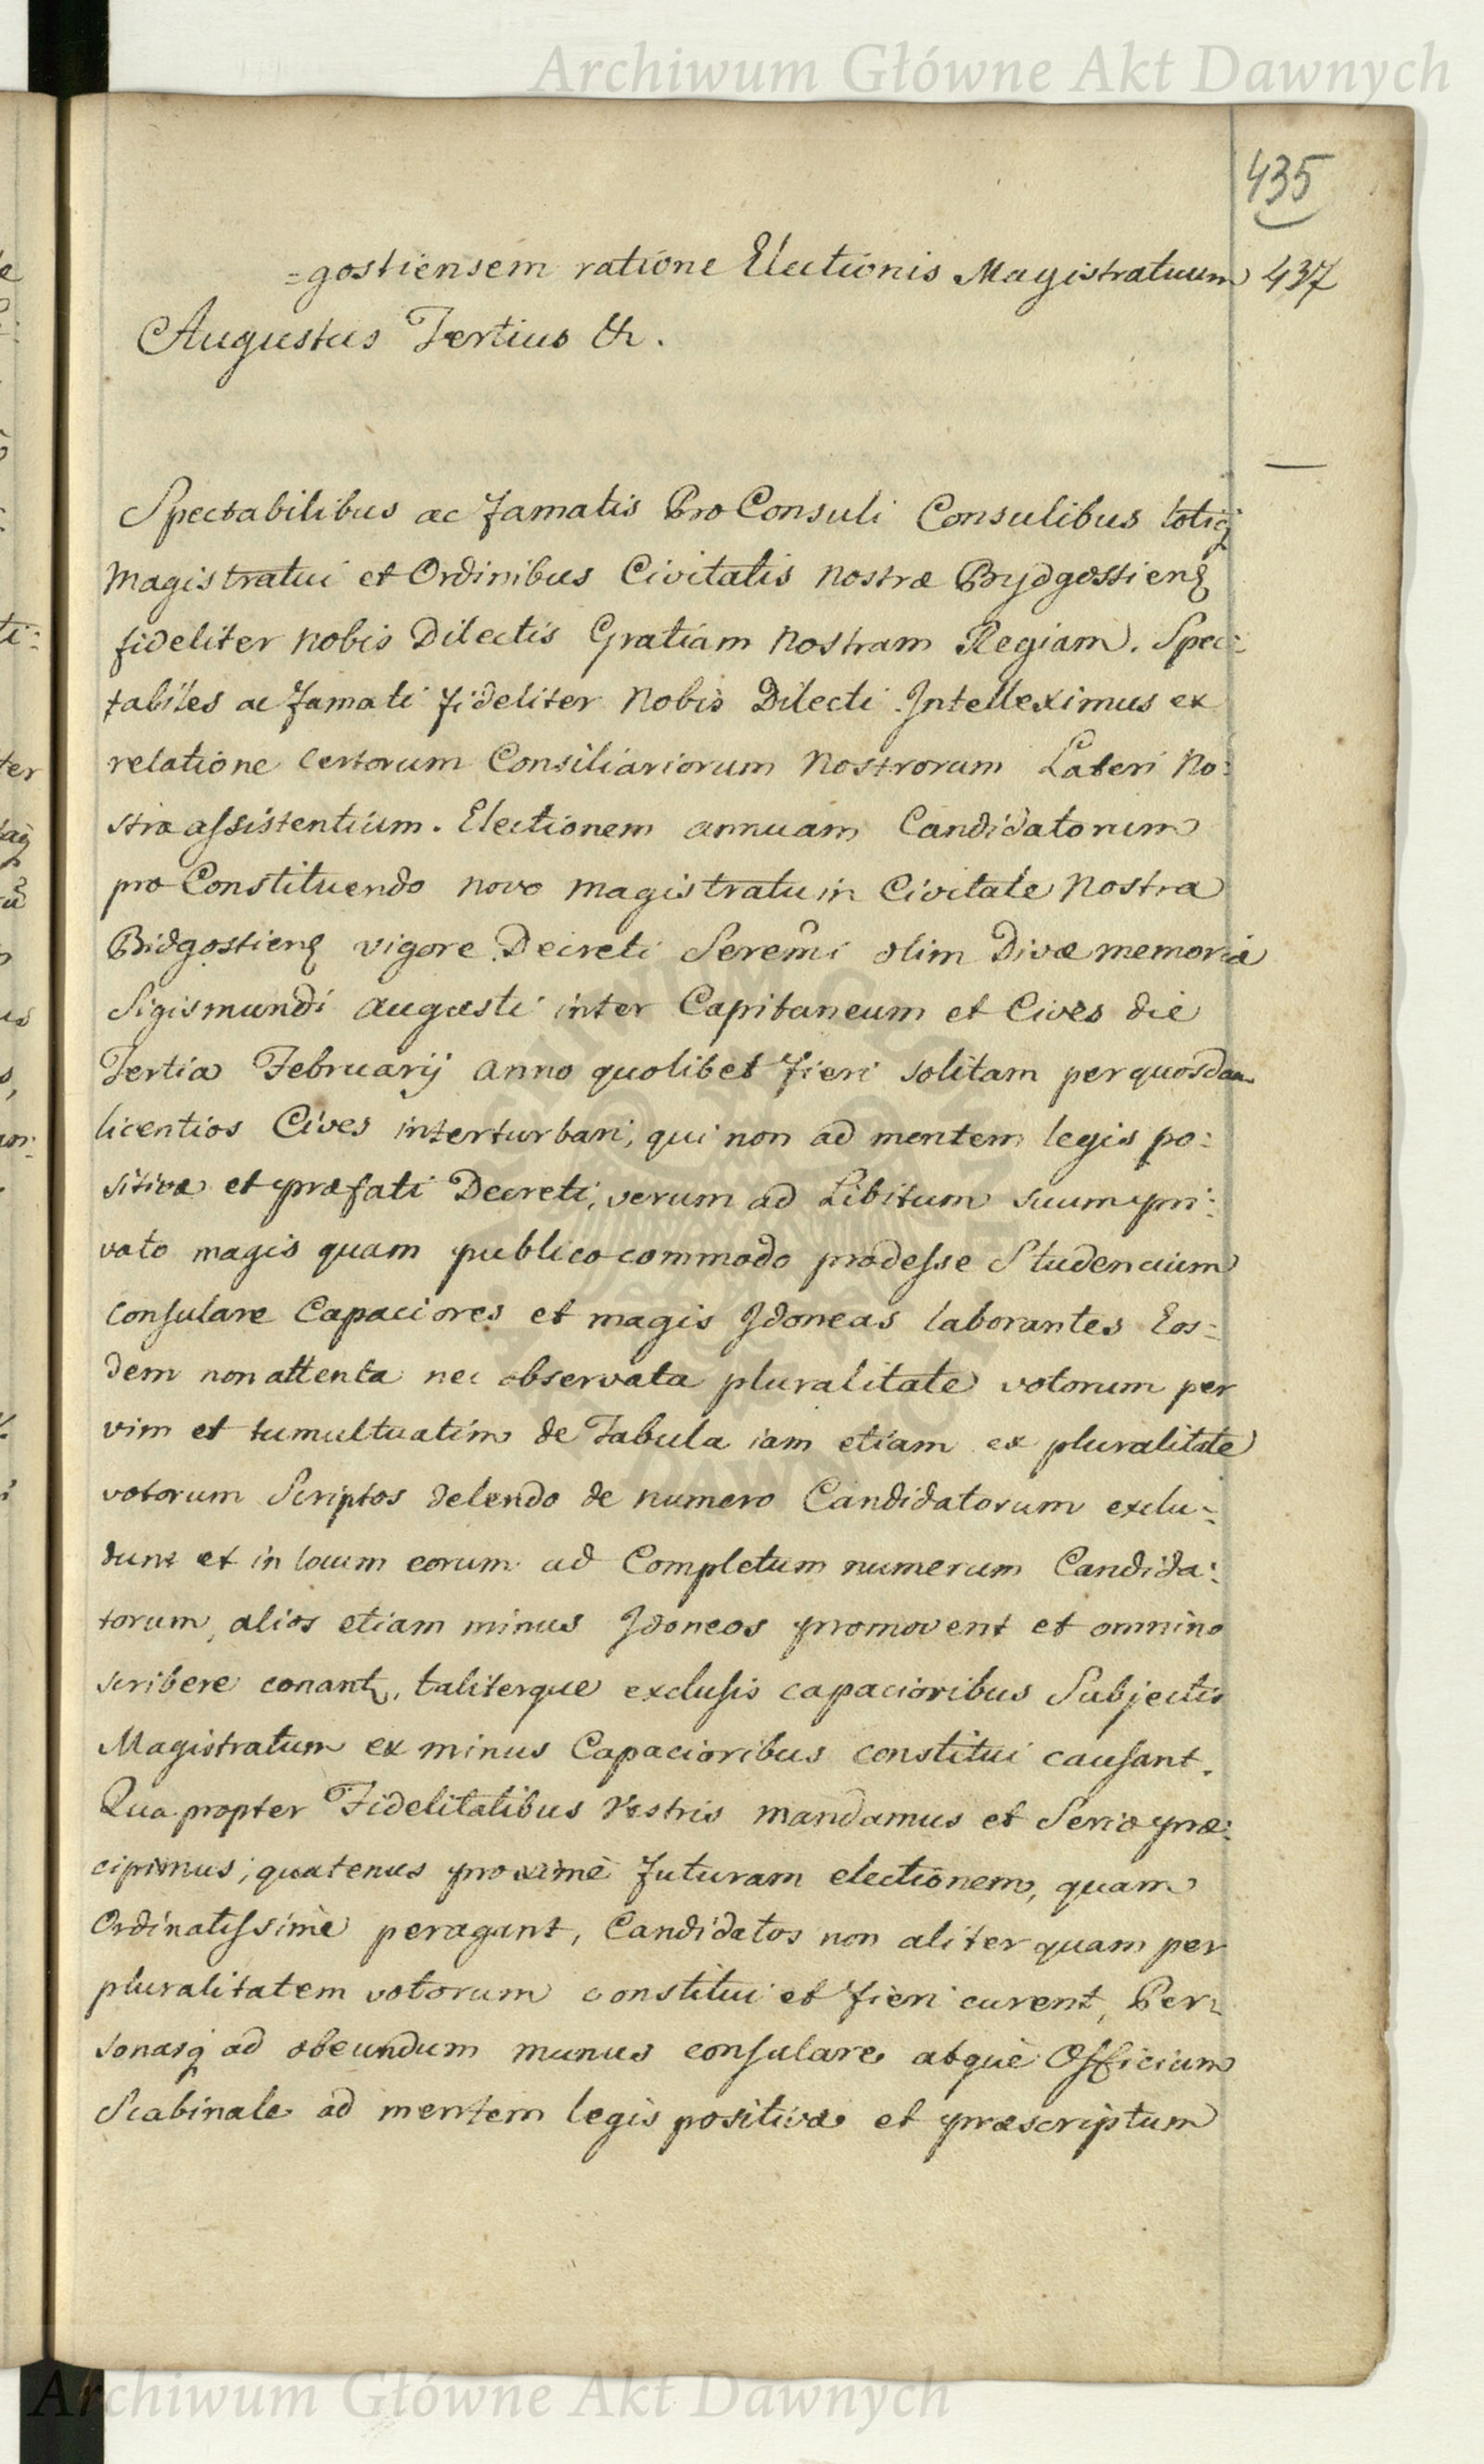 Archiwum Główne Akt Dawnych
435
=gostiensem ratione Electionis Magistratuum 437
Augustus Tertius &c.
Spectabilibus ac famatis ProConsuli Consulibus totiq
Magistratui et Ordinibus Civitatis Nostræ Brydgostienȩ
fideliter nobis Dilectis Gratiam Nostram Regiam. Spec:
tabiles ac famati fideliter Nobis Dilecti. Intelleximus ex
relatione certorum Consiliariorum Nostrorum Lateri No:
stro assistentium. Electionem annuam Candidatorum
pro Constituendo novo magistratu in Civitate Nostra
Bidgostienȩ vigore Decreti Seremi olim Divæ memoriæ
Sigismundi Augusti inter Capitaneum et Cives die
Tertia Februarij anno quolibet fieri solitam per quosdam
licentios Cives interturbari, qui non ad mentem legis po:
sitivæ et præfati Decreti, verum ad Libitum suum pri:
vato magis quam publico commodo prodesse Studencium
Consulare Capaciores et magis Idoneas laborantes Eos:
dem non attenta nec observata pluralitate votorum per
vim et tumultuatim de Tabula iam etiam ex pluralitate
votorum Scriptos delendo de numero Candidatorum exclu:
dunt et in locum eorum ad Completum numerum Candida:
torum, alios etiam minus Idoneos promovent et omnino
scribere conant, taliterque exclusis capacioribus Subjectis
Magistratum ex minus Capacioribus constitui causant.
Qua propter Fidelitatibus Vestris mandamus et Serio præ:
cipimus; quatenus proximè futuram electionem, quam
Ordinatissimè peragant, Candidatos non aliter quam per
pluralitatem votorum constitui et fieri curent, Per:
sonasq ad obeundum munus consulare atquè Officium
Scabinale ad mentem legis positivæ et præscriptum
Archiwum Główne Akt Dawnych